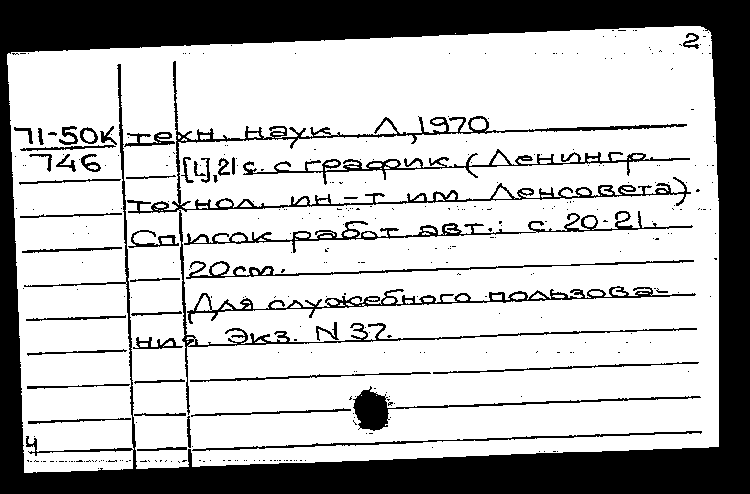 2
71-50К техн. наук. Л., 1970
746 [1], 21 с. с график. (Ленингр.
технол. ин-т им. Ленсовета).
Список работ авт.: с. 20-21.
20см.
Для служебного пользова-
ния. Экз. N 37.
4